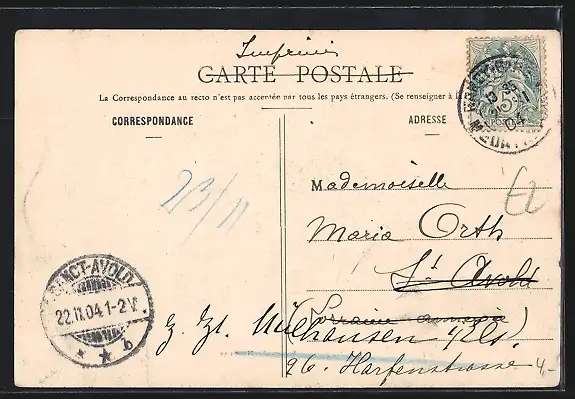 Imprimé
CARTE POSTALE
La Correspondance au recto n'est pas acceptée par tous les pays étrangers. (Se renseigner à
CORRESPONDANCE
ADRESSE
23/11
Mademoiselle
Maria Orth
St Avold
(Lorraine annexée)
SANCT-AVOLD
22.11.04.1-2V.
* * b
z. Zt. Mülhausen i/Els.
26. Harfenstrasse
4,-